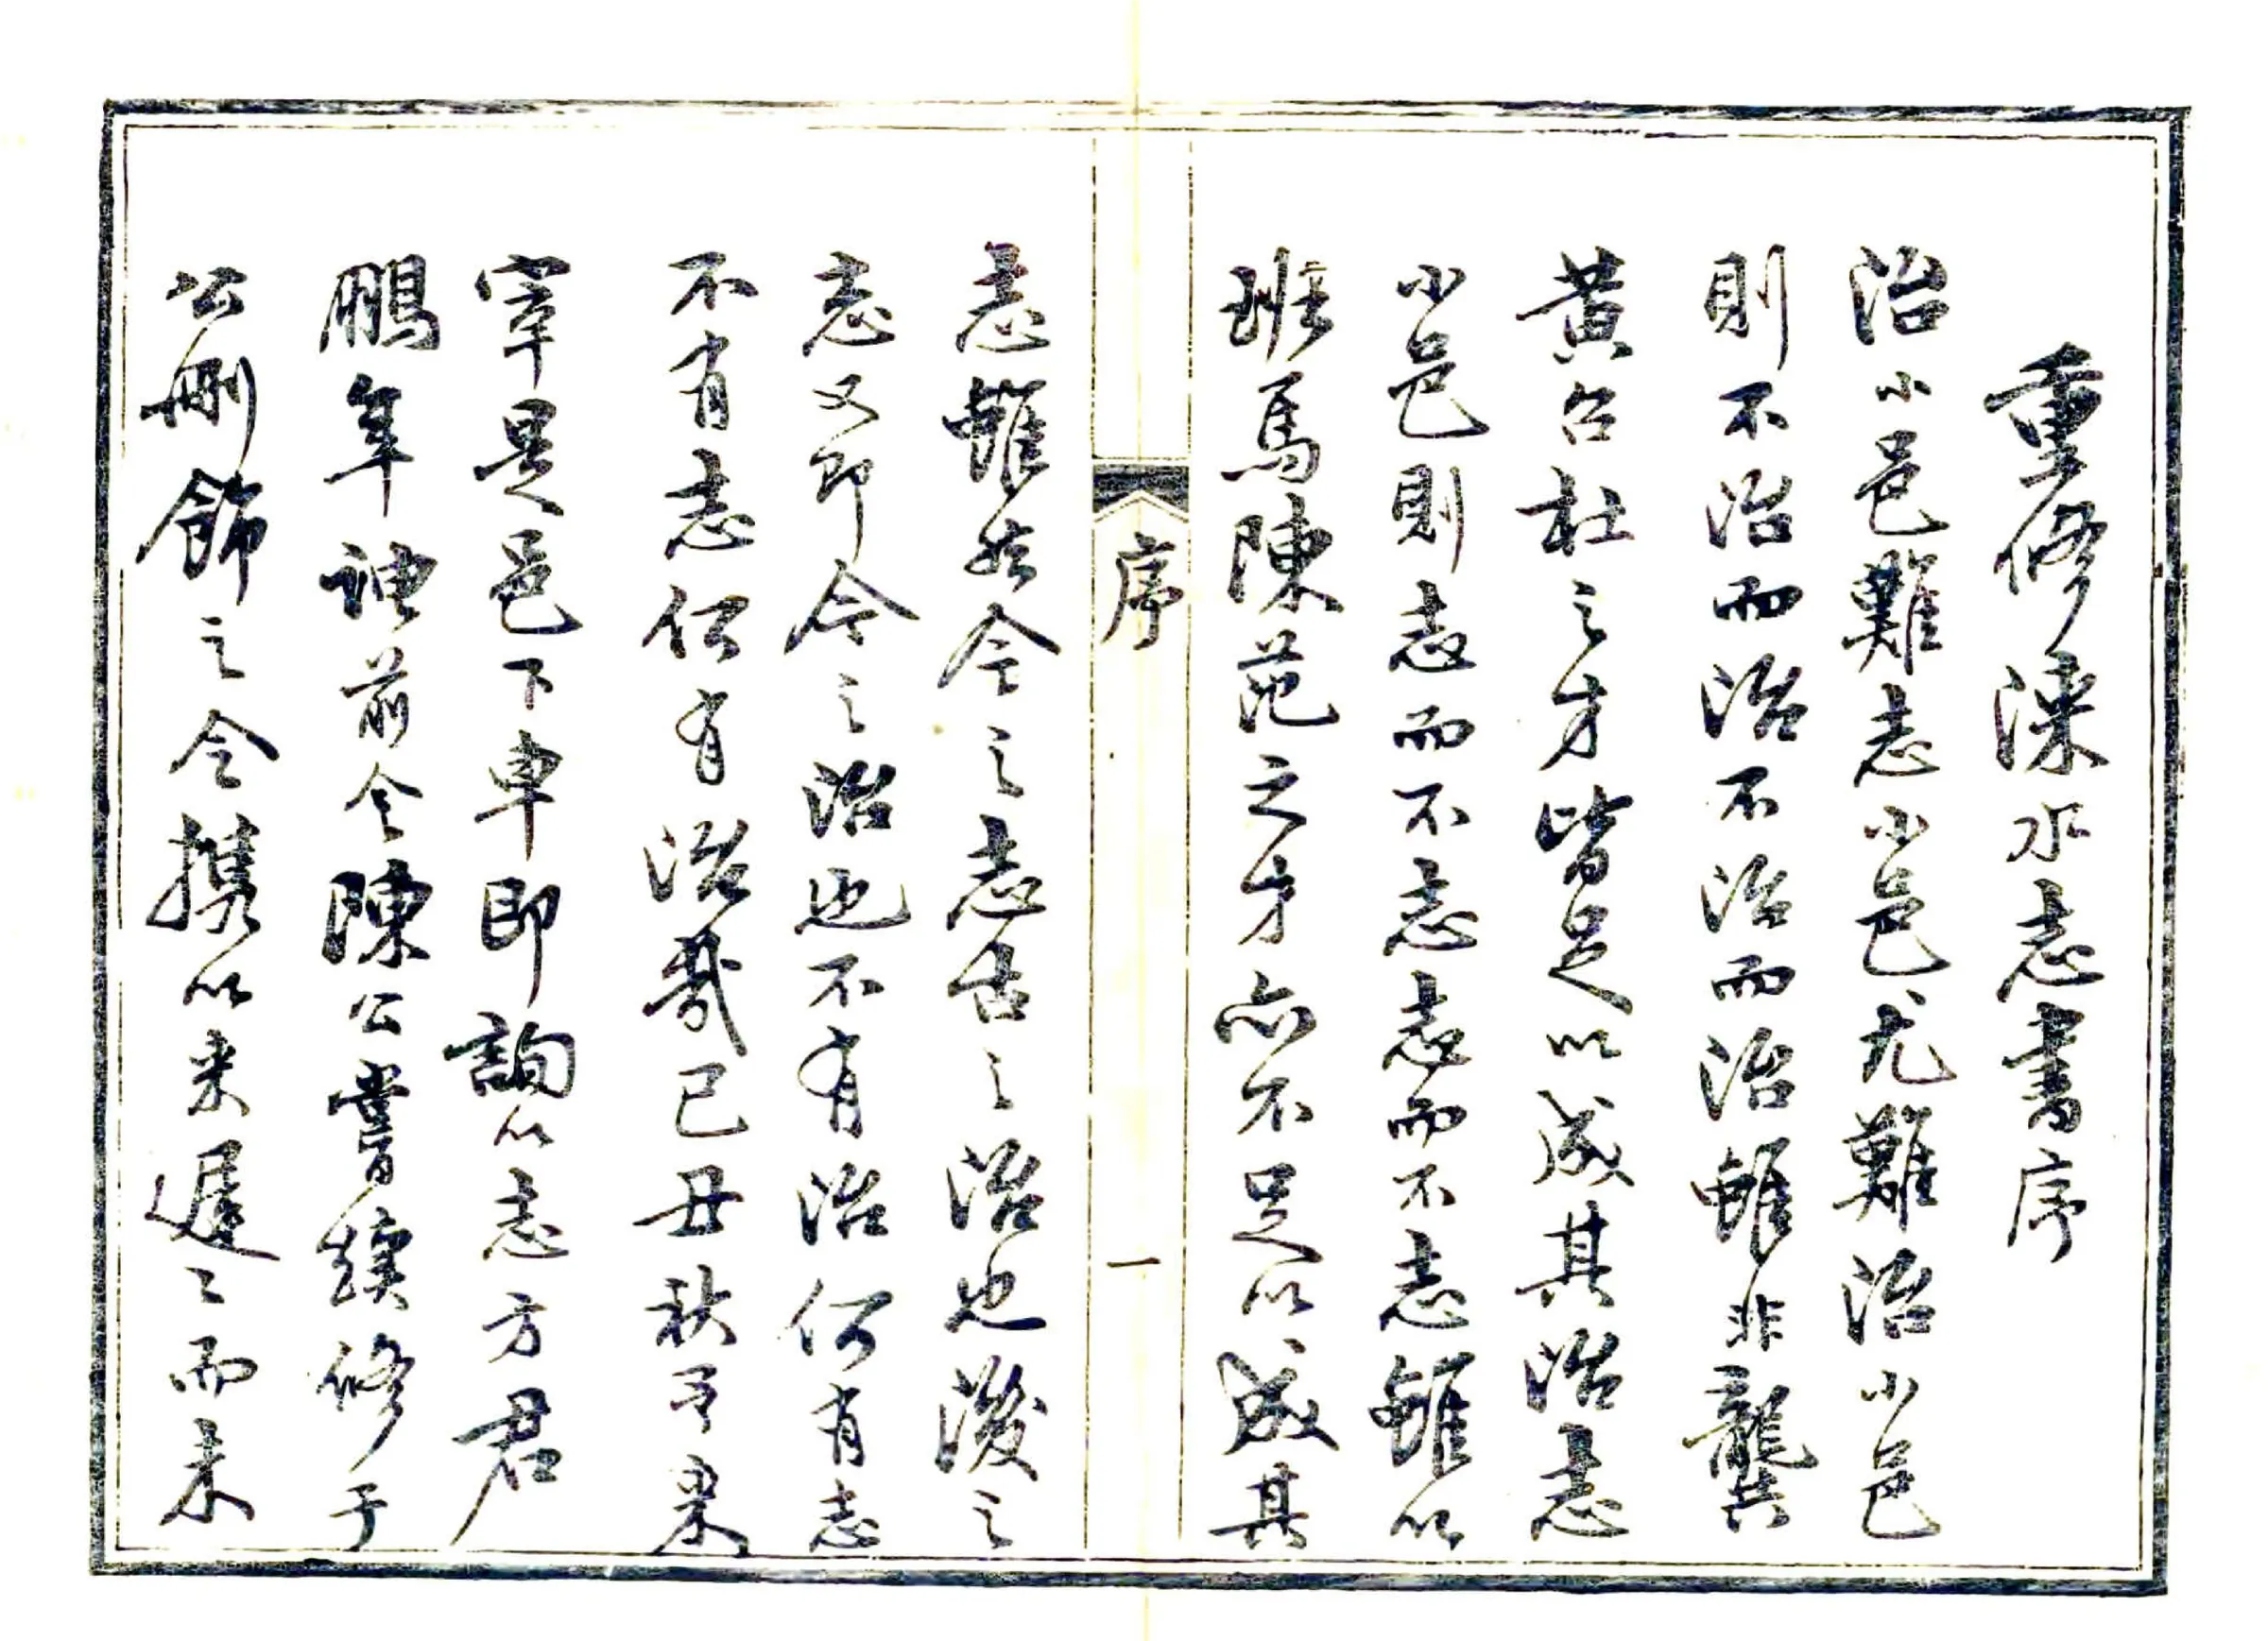 重修溧水志書序
治小邑難志小邑尤難治小邑
則不治而治不治而治雖非龔
黃召杜之才皆足以成其治志
小邑則志而不志志而不志雖以
班馬陳范之才亦不足以成其
序
一
志雖然今之志古之治也後之
志又即今之治也不有治何有志
不有志何有治哉己丑秋予來
宰是邑下車即詢以志方君
鵬年前令陳公嘗續修于
公刪飾之今携以来遲〻而未